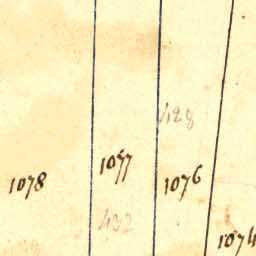 428
1077
1078
1076
432
1074